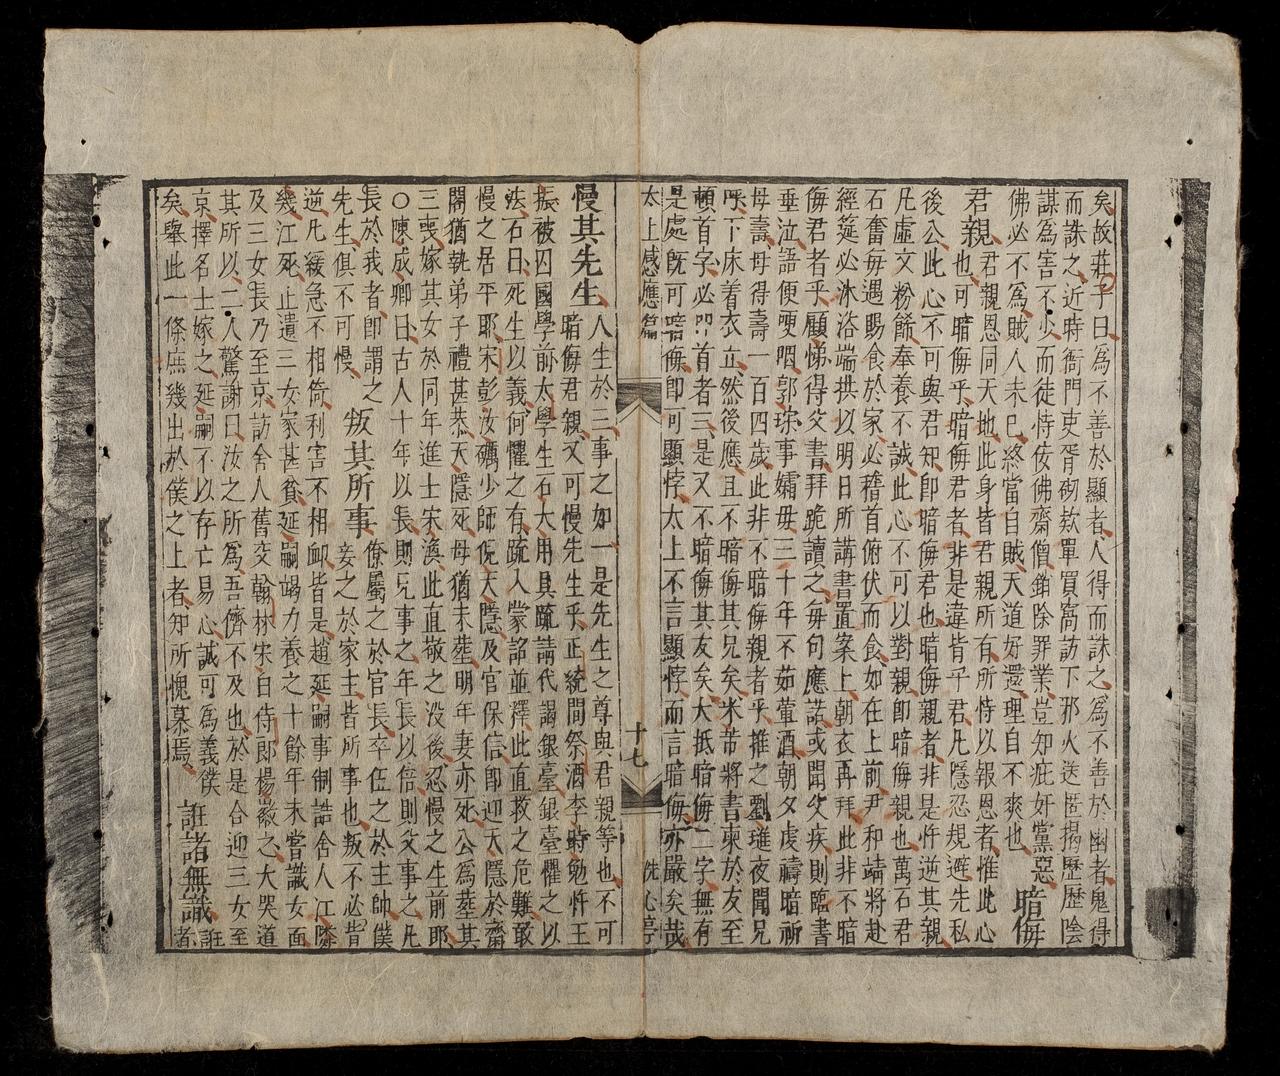 矣故莊子曰為不善於顯者人得而誅之為不善於幽者鬼得
而誅之近時衙門吏胥砌款單買窩訪下邪火送匿揭歷歷陰
謀為害不少而徒恃佞佛齋僧銷除罪業豈知庇奸黨惡暗侮
佛必不為賊人未已終當自賊天道好還理自不爽也
君親君親恩同天地此身皆君親所有所恃以報恩者惟此心
也可暗侮乎暗侮君者非是違背乎君凡隱忍規避先私
後公此心不可與君知卽暗侮君也暗侮親者非是忤逆其親
凡虛文粉餙奉養不誠此心不可以對親卽暗侮親也萬石君
石奮每遇賜食於家必稽首俯伏而食如在上前尹和靖將赴
經筵必沐浴端拱以明日所講書置案上朝衣再拜此非不暗
侮君者乎顧悌得父書拜跪讀之每句應諾或聞父疾則臨書
垂泣語便哽咽郭琮事孀母三十年不茹葷酒朝夕虔禱暗祈
母壽母得壽一百四歲此非不暗侮親者乎推之劉璡夜聞兄
呼下床着衣立然後應且不暗侮其兄矣米芾將書柬於友至
頓首字必首者三是又不暗侮其友矣大抵暗侮二字無有
是處旣可暗侮卽可顯悖太上不言顯悖而言暗侮亦嚴矣哉
太上感應篇 十七 洗心亭
慢其先生人生於三事之如一是先生之尊與君親等也不可
暗侮君親又可慢先生乎正統間祭酒李時勉忤王
振被囚國學前太學生石大用具疏請代謁銀臺銀臺懼之以
法石曰死生以義何懼之有疏入蒙詔並釋此直救之危難敢
慢之居平耶宋彭汝礪少師倪天隱及官保信卽迎天隱於齋
閣猶執弟子禮甚恭天隱死母猶未塟明年妻亦死公為塟其
三喪嫁其女於同年進士宋渙此直敬之没後忍慢之生前耶
○陳成卿曰古人十年以長則兄事之年長以倍則父事之凡
長於我者卽謂之叛其所事僚屬之於官長卒伍之於主帥僕
先生俱不可慢妾之於家主皆所事也叛不必皆
逆凡緩急不相倚利害不相卹皆是趙延嗣事制誥舍人江隣
幾江死止遺三女家甚貧延嗣竭力養之十餘年未嘗識女面
及三女長乃至京訪舍人舊交翰林宋白侍郎楊徽之大哭道
其所以二人驚謝曰汝之所為吾儕不及也於是合迎三女至
京擇名士嫁之延嗣不以存亡易心誠可為義僕
矣舉此一條庶幾出於僕之上者知所愧慕焉誑諸無識誑者